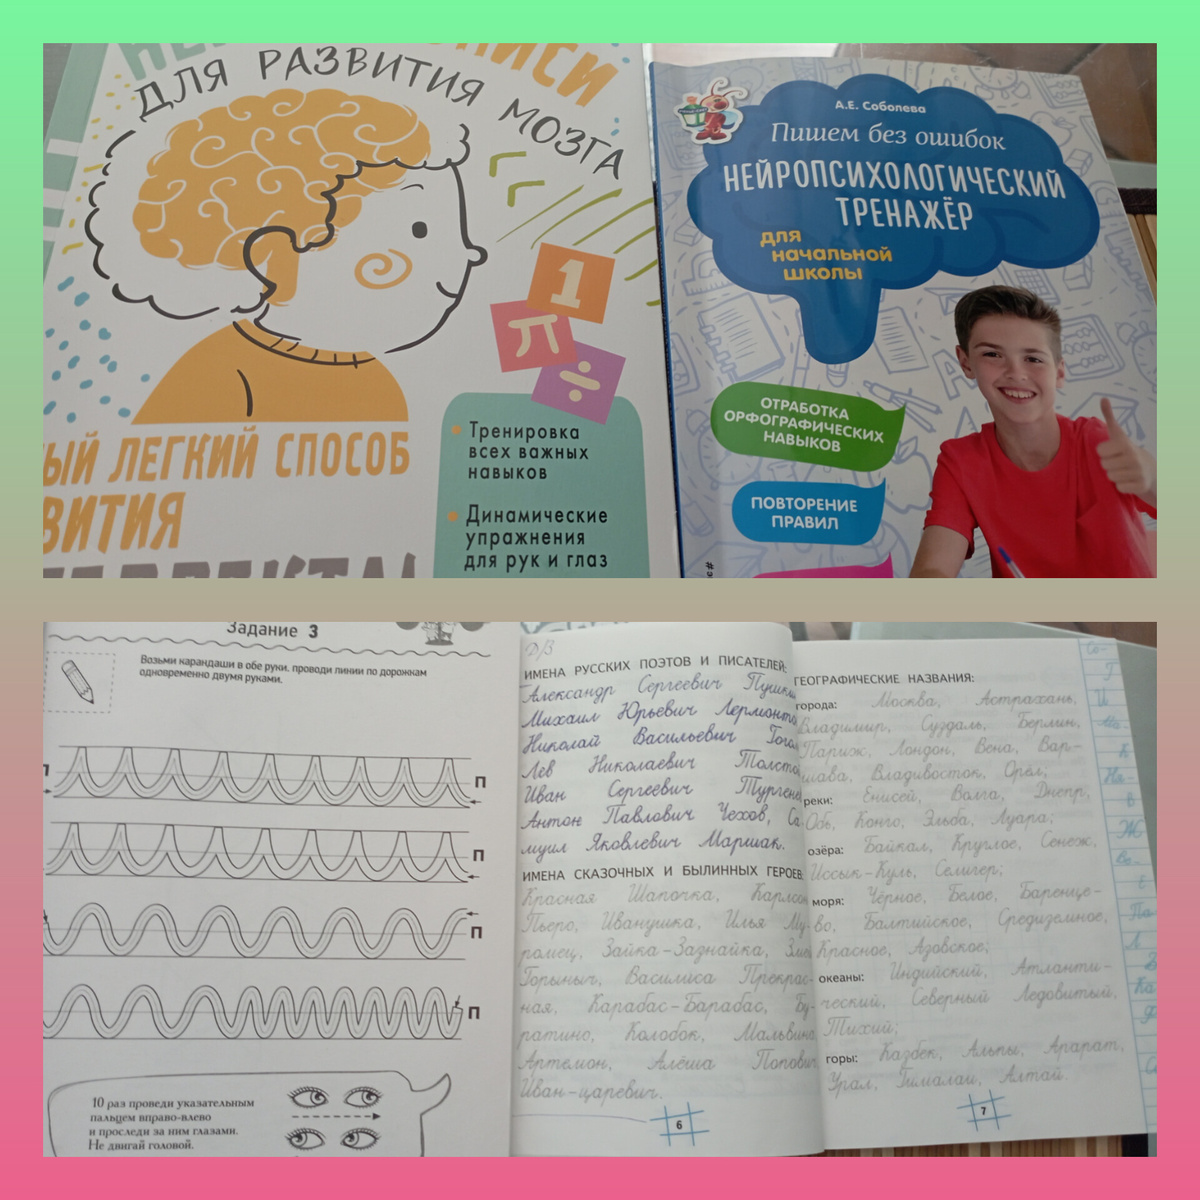 ДЛЯ РАЗВИТИЯ МОЗГА
1
π
÷
ЫЙ ЛЕГКИЙ СПОСОБ
ВИТИЯ
Тренировка
всех важных
навыков
Динамические
упражнения
для рук и глаз
А.Е. Соболева
Пишем без ошибок
НЕЙРОПСИХОЛОГИЧЕСКИЙ
ТРЕНАЖЁР
для
начальной
школы
ОТРАБОТКА
ОРФОГРАФИЧЕСКИХ
НАВЫКОВ
ПОВТОРЕНИЕ
ПРАВИЛ
Задание 3
Возьми карандаши в обе руки, проводи линии по дорожкам
одновременно двумя руками.
П
П
П
П
10 раз проведи указательным
пальцем вправо-влево
и проследи за ним глазами.
Не двигай головой.
Д/З
ИМЕНА РУССКИХ ПОЭТОВ И ПИСАТЕЛЕЙ:
Александр Сергеевич Пушки
Михаил Юрьевич Лермонто
Николай Васильевич Гого
Лев Николаевич Толсто
Иван Сергеевич Тургене
Антон Павлович Чехов, Са
муил Яковлевич Маршак.
ИМЕНА СКАЗОЧНЫХ И БЫЛИННЫХ ГЕРОЕВ:
Красная Шапочка, Карлсон
Пьеро, Иванушка, Илья Му-
ромец, Зайка-Зазнайка, Змей
Горыныч, Василиса Прекрас-
ная, Карабас-Барабас, Бу-
ратино, Колобок, Мальвина
Артемон, Алёша Попович
Иван-царевич.
6
ГЕОГРАФИЧЕСКИЕ НАЗВАНИЯ:
города: Москва, Астрахань,
Владимир, Суздаль, Берлин,
Париж, Лондон, Вена, Вар-
шава, Владивосток, Орёл;
реки: Енисей, Волга, Днепр,
Обь, Конго, Эльба, Луара;
озёра: Байкал, Круглое, Сенеж,
Иссык-Куль, Селигер;
моря: Чёрное, Белое, Баренце-
во, Балтийское, Средиземное,
Красное, Азовское;
океаны: Индийский, Атланти-
ческий, Северный Ледовитый,
Тихий;
горы: Казбек, Альпы, Арарат,
Урал, Гималаи, Алтай.
7